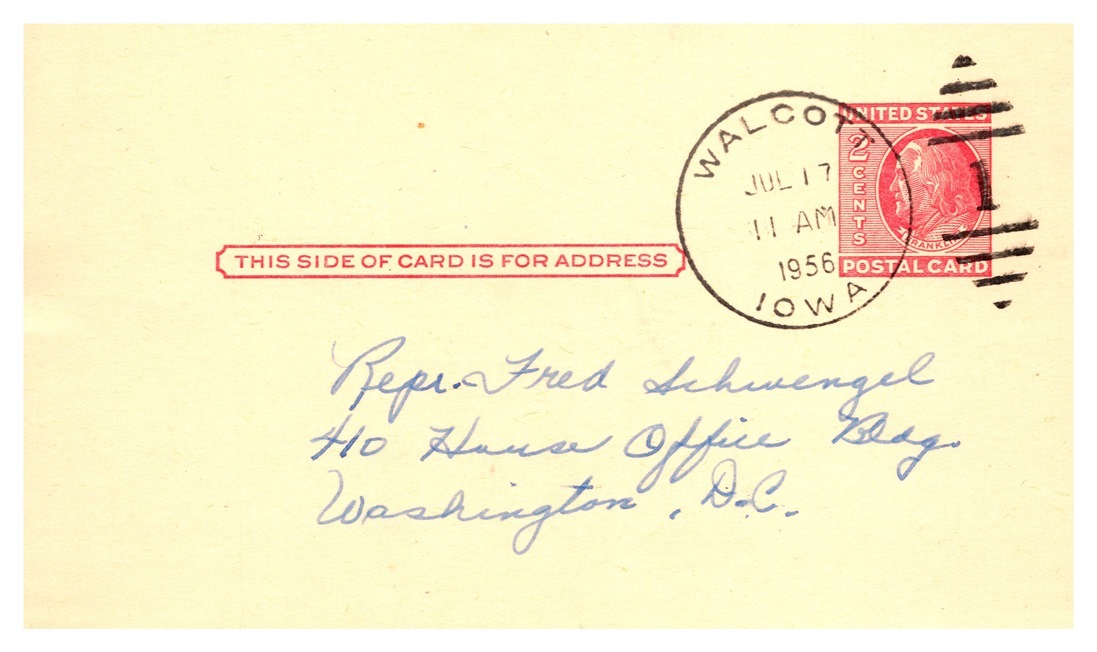 WALCOTT
JUL 17
11 AM
1956
IOWA
1
UNITED STATES
2 CENTS
FRANKLIN
POSTAL CARD
THIS SIDE OF CARD IS FOR ADDRESS
Repr. Fred Schwengel
410 House Office Bldg.
Washington, D.C.